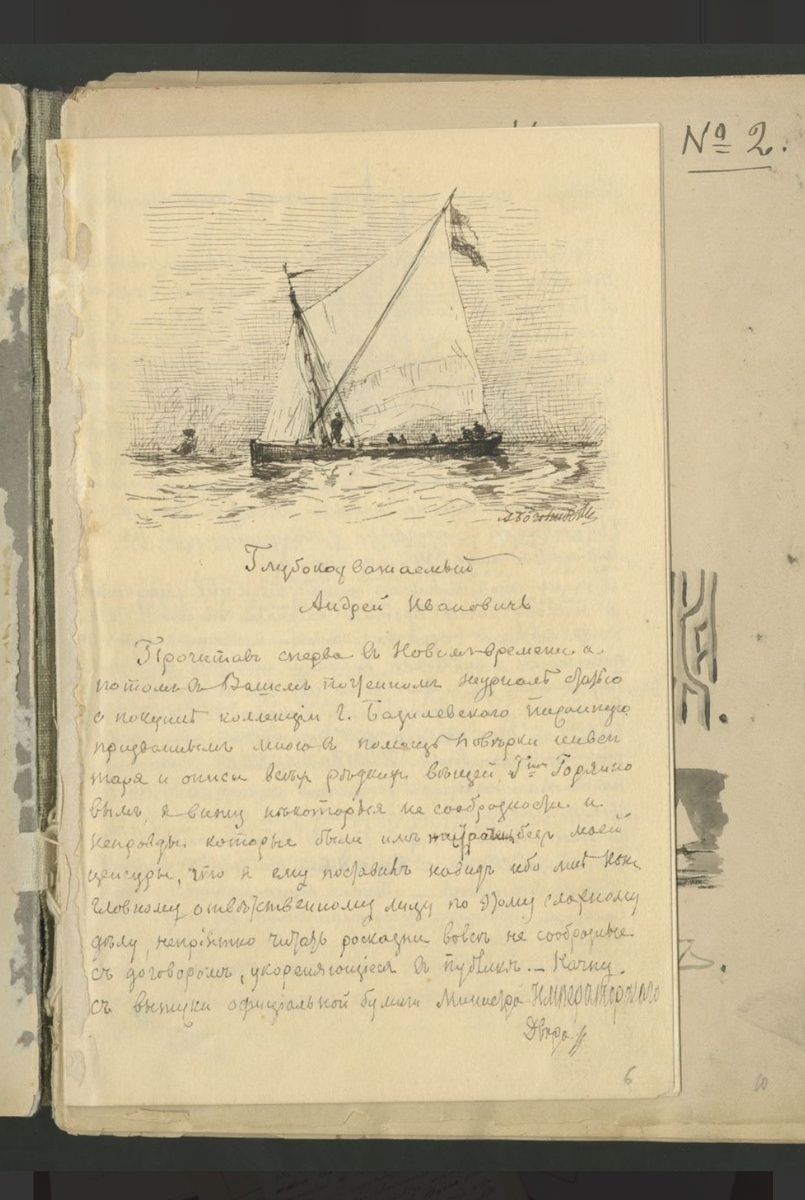 № 2.
А Боголюбовъ
Глубокоуважаемый
Андрей Ивановичъ
Прочитавъ сперва въ Новомъ Времени а
потомъ въ Вашемъ почтенномъ журналѣ статью
о покупкѣ коллекціи г. Базилевскаго
призваннымъ мною въ помощь повѣрки инвен
таря и описи всѣхъ рѣдкихъ вещей, Горяйно
вымъ, я вижу нѣкоторыя не сообразности и
неправды которые были имъ безъ моей
цензуры, что я ему поставилъ на видъ ибо мнѣ какъ
главному отвѣтственному лицу по этому сложному
дѣлу, непріятно читать росказни вовсе не сообразные
съ договоромъ, укореняющіеся въ публикѣ. — Начну
съ выписки офиціальной бумаги Министра Императорскаго
Двора
6